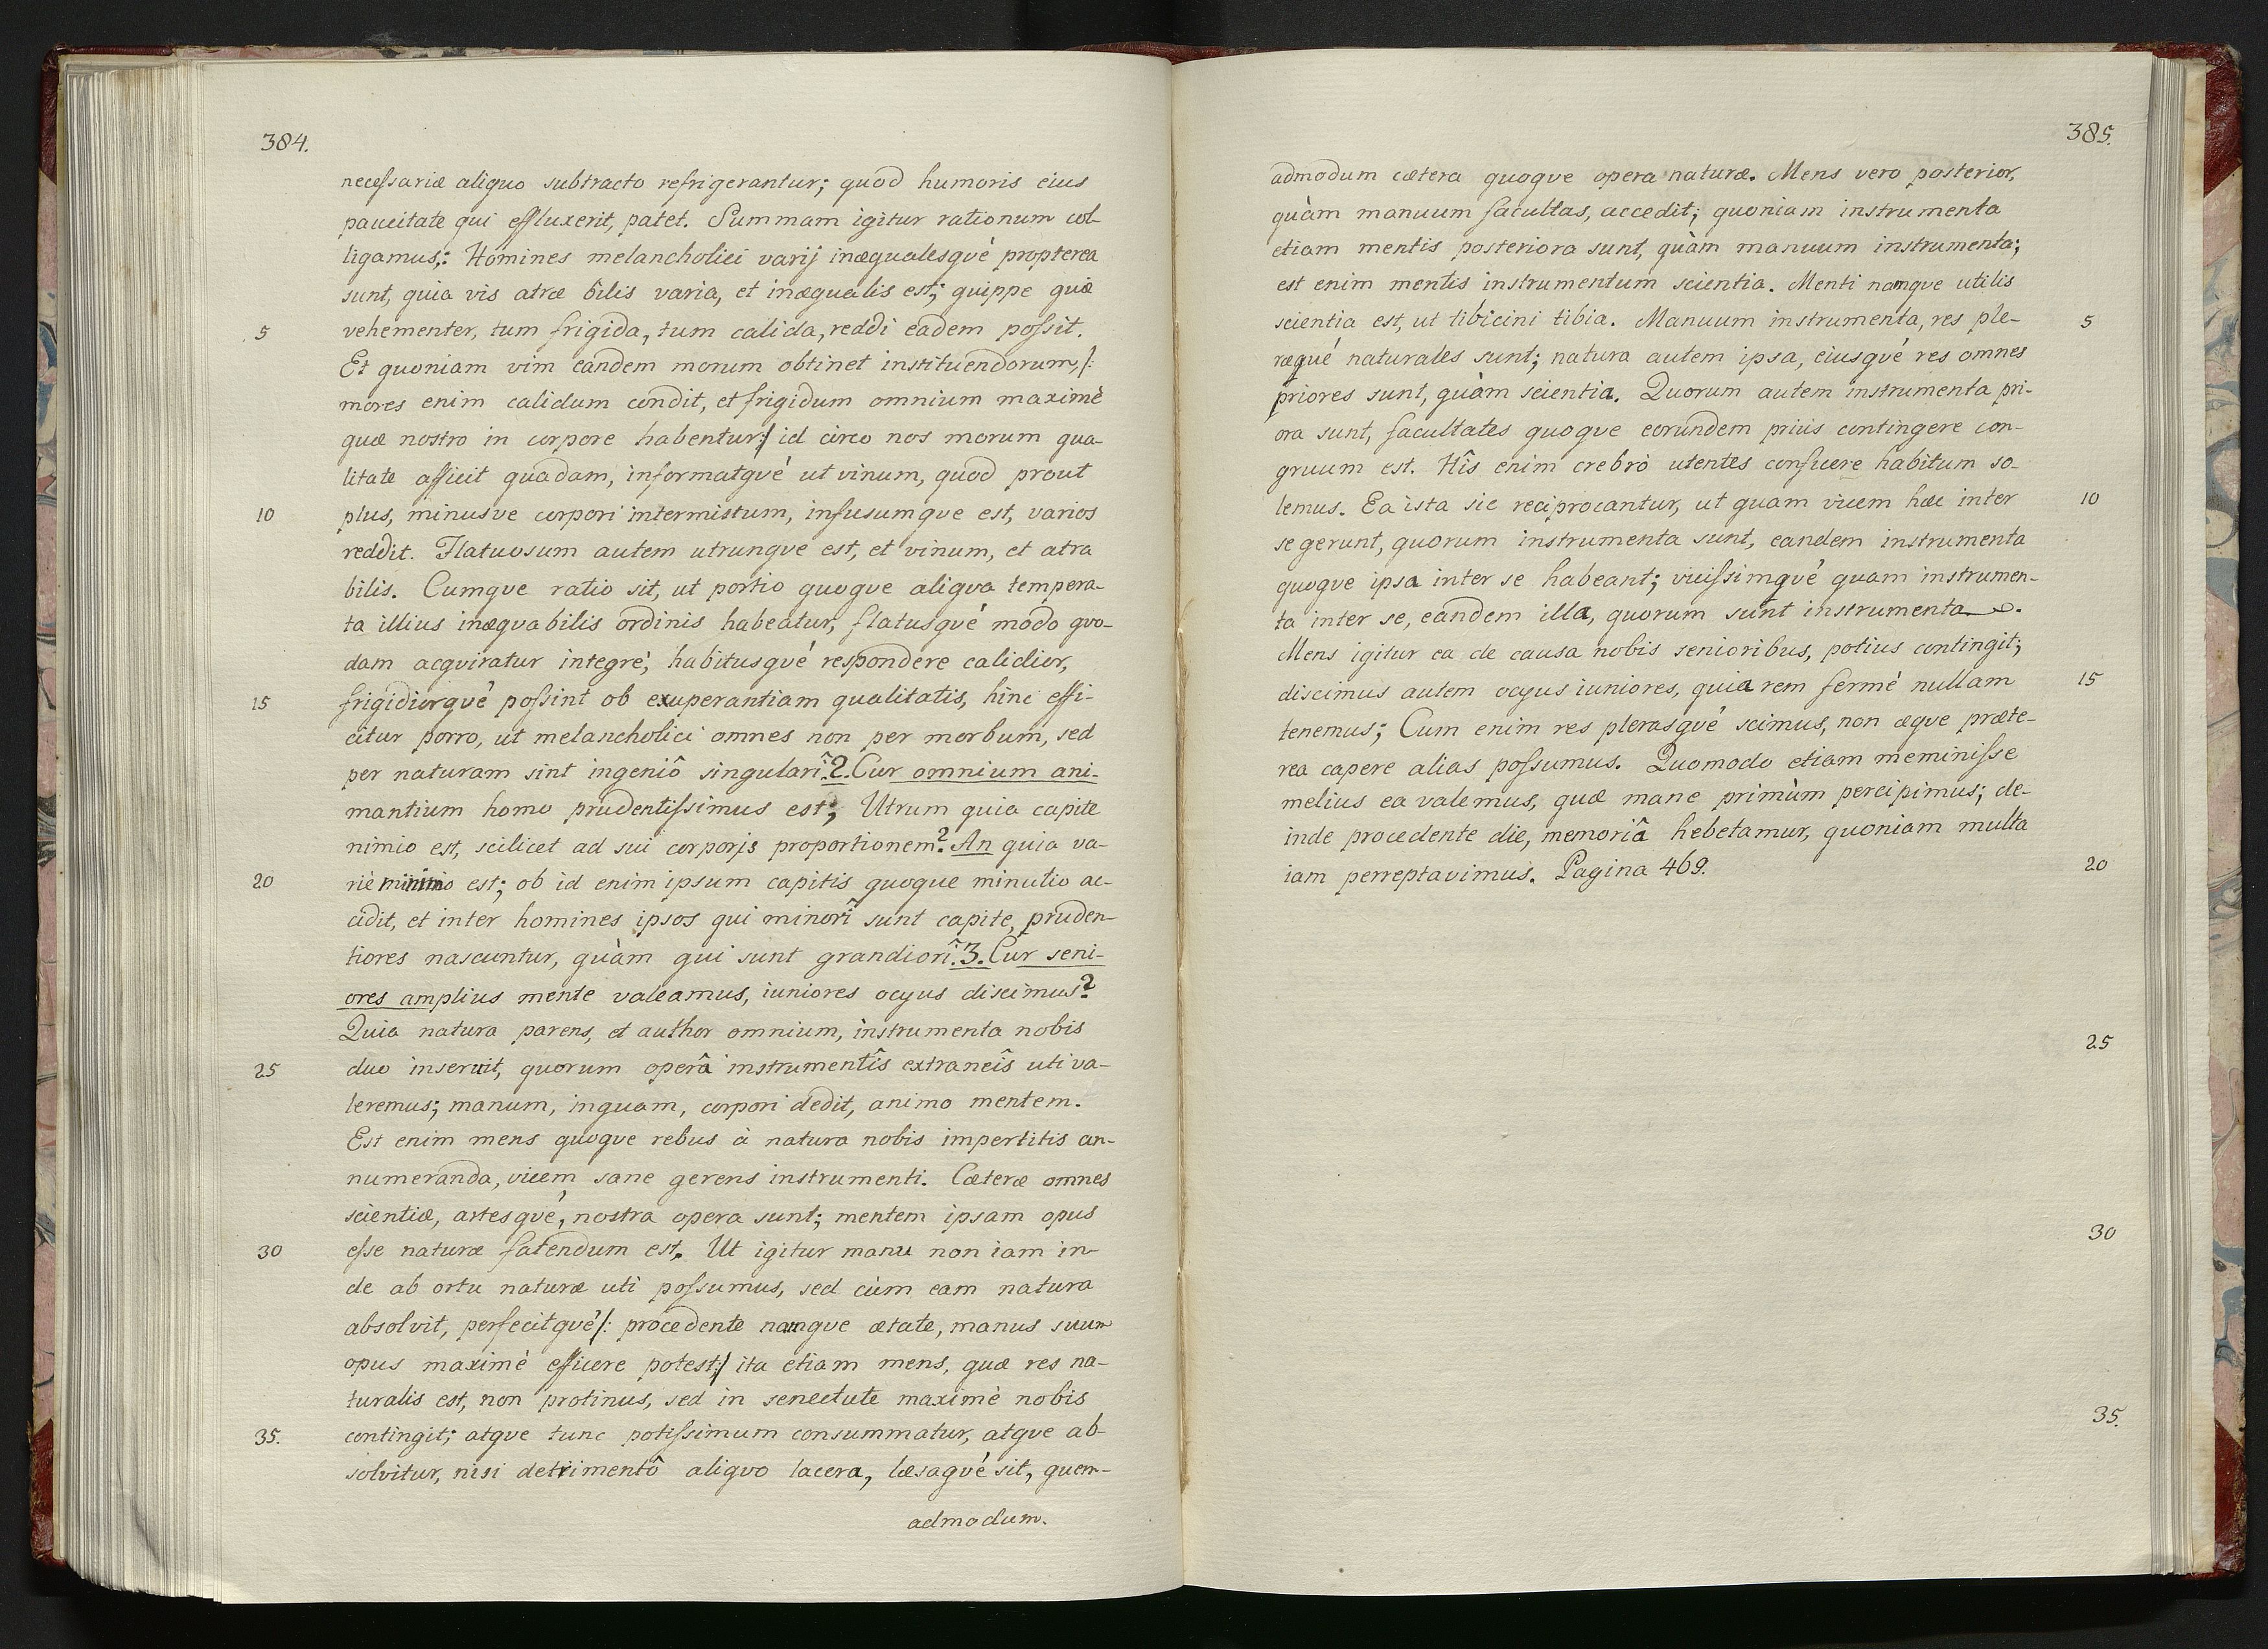 384.
necessariæ aliquo subtracto refrigerantur; quod humoris eius
paucitate qui effluxerit, patet. Summam igitur rationum col-
ligamus,: Homines melancholici varij inæqualesquè propterea
sunt, quia vis atræ bilis varia, et inæqualis est; quippe quæ
5 vehementer, tum frigida, tum calida, reddi eadem possit.
Et quoniam vim eandem morum obtinet instituendorum,/:
mores enim calidum condit, et frigidum omnium maximè
quæ nostro in corpore habentur:/ id circo nos morum qua-
litate afficit quadam, informatqué ut vinum, quod prout
10 plus, minusve corpori intermistum, infusumque est, varios
reddit. Flatuosum autem utrunque est, et vinum, et atra
bilis. Cumque ratio sit, ut portio quoque aliqua tempera-
ta illius inæquabilis ordinis habeatur, flatusqué modo quo-
dam acquiratur integrè, habitusqué respondere calidior,
15 frigidiorqué possint ob exuperantiam qualitatis, hinc effi-
citur porro, ut melancholici omnes non per morbum, sed
per naturam sint ingeniô singularî. 2. Cur omnium ani-
mantium homo prudentissimus est; Utrum quia capite
nimio est, scilicet ad sui corporis proportionem? An quia va-
20 riè minimo est; ob id enim ipsum capitis quoque minutio ac-
cidit, et inter homines ipsos qui minorî sunt capite, pruden-
tiores nascuntur, quàm qui sunt grandiorî. 3. Cur seni-
ores amplius mente valeamus, iuniores ocyus discimus?
Quia natura parens, et author omnium, instrumenta nobis
25 duo inseruit, quorum operâ instrumentîs extraneîs uti va-
leremus; manum, inquam, corpori dedit, animo mentem.
Est enim mens quoque rebus à natura nobis impertitis an-
numeranda, vicem sane gerens instrumenti. Cæteræ omnes
scientiæ, artesqué, nostra opera sunt; mentem ipsam opus
30 esse naturæ fatendum est. Ut igitur manu non iam in-
de ab ortu naturæ uti possumus, sed cùm eam natura
absolvit, perfecitqué/: procedente namque ætate, manus suum
opus maximè efficere potest:/ ita etiam mens, quæ res na-
turalis est, non protinus, sed in senectute maximè nobis
35. contingit; atque tunc potissimum consummatur, atque ab-
solvitur, nisi detrimentô aliquo lacera, læsaqué sit, quem-
admodum.
385.
admodum cætera quoque opera naturæ. Mens vero posterior,
quàm manuum facultas, accedit; quoniam instrumenta
etiam mentis posteriora sunt, quàm manuum instrumenta;
est enim mentis instrumentum scientia. Menti namque utilis
scientia est, ut tibicini tibia. Manuum instrumenta, res ple- 5
ræqué naturales sunt; natura autem ipsa, eiusqué res omnes
priores sunt, quàm scientia. Quorum autem instrumenta pri-
ora sunt, facultates quoque eorundem prius contingere con-
gruum est. Hîs enim crebrò utentes consuere habitum so-
lemus. Ea ista sic reciprocantur, ut quam vicem hæc inter 10
se gerunt, quorum instrumenta sunt, eandem instrumenta
quoque ipsa inter se habeant; vicissimqué quam instrumen-
ta inter se, eandem illa, quorum sunt instrumenta.
Mens igitur ea de causa nobis senioribus, potius contingit;
discimus autem ocyus iuniores, quia rem fermé nullam 15
tenemus; Cum enim res plerasqué scimus, non æque præte-
rea capere alias possumus. Quomodo etiam meminisse
melius ea valemus, quæ mane primùm percipimus; de-
inde procedente die, memoriâ hebetamur, quoniam multa
iam perreptavimus. Pagina 469. 20
25
30
35.